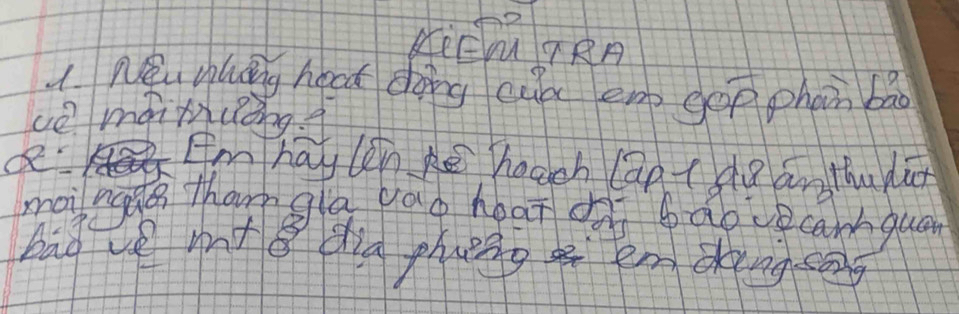 KIỂM TRA
1. Nêu những hoạt động của em góp phần bảo
vệ môi trường?
2: Em hãy lên kế hoạch lập 1 dự án thu hút
mọi người tham gia vào hoạt động bảo vệ cảnh quan
bảo vệ mt ở địa phương em đang sống